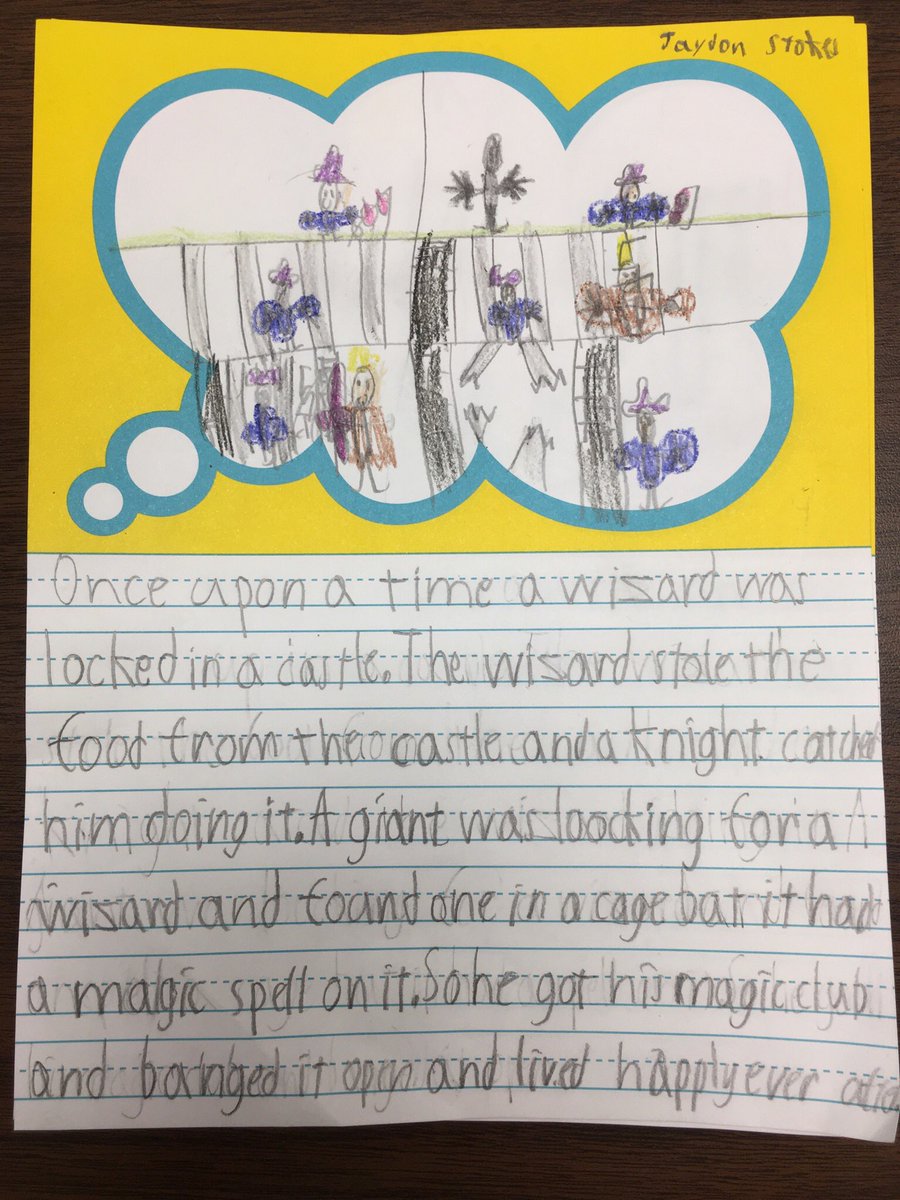 Jaydon Stokes
Once upon a time a wizard was
locked in a castle. The wizard stole the
food from the castle and a knight catched
him doing it. A giant was loocking for a
wizard and foand one in a cage but it had
a magic spell on it. So he got his magic club
and banged it open and lived happly ever